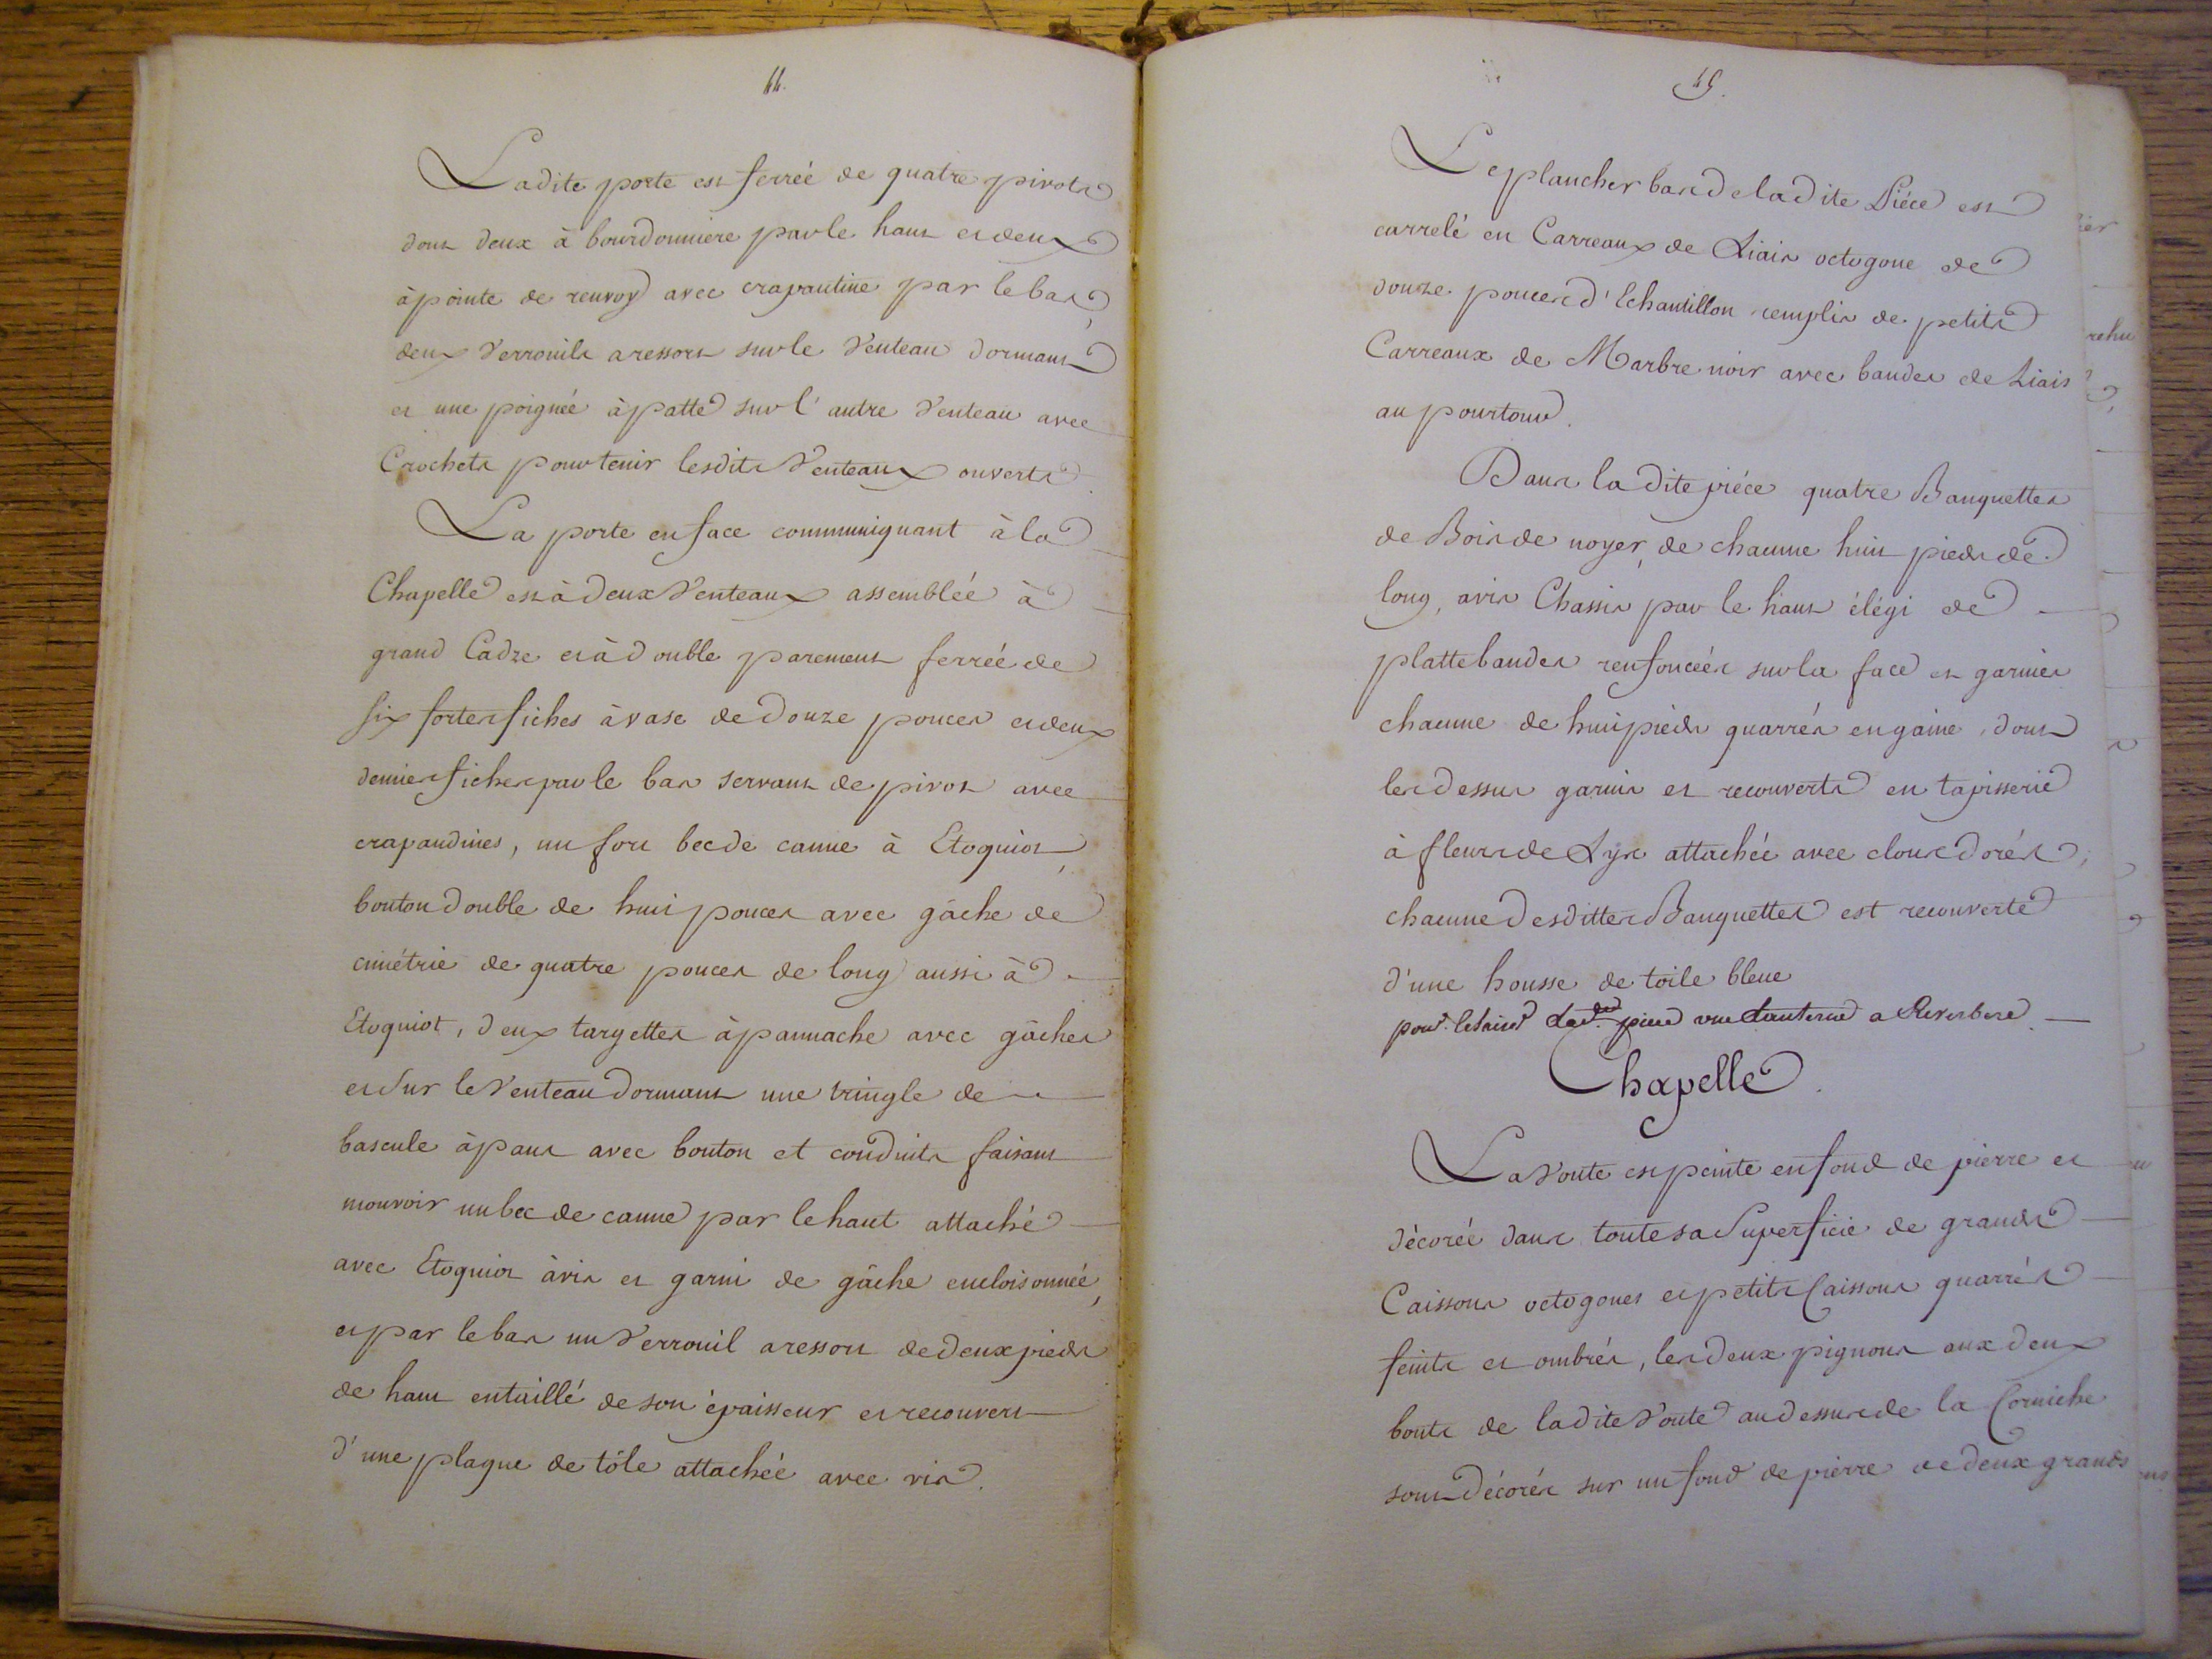 44.
Ladite porte est ferrée de quatre pivots
dont deux à bourdonniere par le haut et deux
à pointe de renvoy avec crapautine par le bas,
deux Verrouils a ressort sur le Venteau dormant
et une poignée à patte sur l'autre Venteau avec
Crochets pour tenir lesdits Venteaux ouverts.
La porte en face communiquant à la
Chapelle est à deux Venteaux assemblée à
grand Cadre et à double parement ferrée de
six fortes fiches à vase de douze pouces et deux
demies fiches par le bas servant de pivot avec
crapaudines, un fort bec de canne à Etoquiot,
bouton double de huit pouces avec gâche de
cimétrie de quatre pouces de long aussi à
Etoquiot, deux targettes à pannache avec gâches
et Sur le Venteau dormant une tringle de
bascule à pans avec bouton et conduits faisant
mouvoir un bec de canne par le haut attaché
avec Etoquiot à vis et garni de gâche encloisonnée,
et par le bas un Verrouil a ressort de deux pieds
de haut entaillé de son épaisseur et recouvert
d'une plaque de tôle attachée avec vis.
45.
Le plancher bas de ladite Piéce est
carrelé en Carreaux de Liais octogone de
douze pouces d'Echantillon remplis de petits
Carreaux de Marbre noir avec bandes de Liais
au pourtour.
Dans ladite piéce quatre Banquettes
de Bois de noyer, de chacune huit pieds de
long, avis Chassis par le haut élégi de
plattebandes renfoncées sur la face et garnies
chacune de huit piéds quarrés en gaine, dont
les dessus garnis et recouverts en tapisserie
à fleurs de Lys attachée avec clous dorés,
chacune desdittes Banquettes est recouverte
d'une housse de toile bleue
pour piece une Lanterne a Reverbere
Chapelle.
La Voute est peinte en fond de pierre et
décorée dans toute sa Superficie de grands
Caissons octogones et petits Caissons quarrés
feints et ombrés, les deux pignons aux deux
bouts de ladite Voute au dessus de la Corniche
sont décorés sur un fond de pierre de deux grands